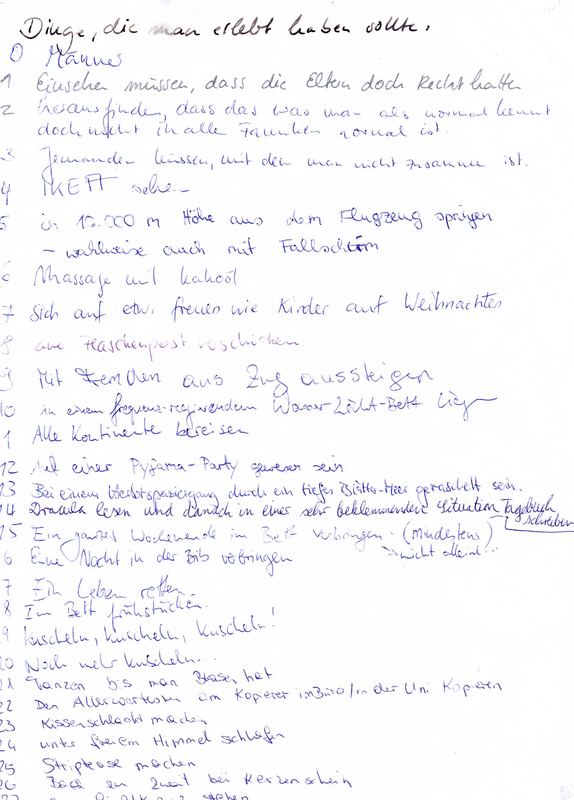 Dinge, die man erlebt haben sollte.
0 Männer
1 Einsehen müssen, dass die Eltern doch Recht hatten.
2 herausfinden, dass das was man als normal kennt
doch nicht in alle Familien normal ist.
3 Jemanden küssen, mit dem man nicht zusammen ist.
4 sehen
5 in 10.000 m Höhe aus dem Flugzeug springen
– wahlweise auch mit Fallschirm
6 Massage mit
7 sich auf etw. freuen wie Kinder auf Weihnachten
8 eine Flaschenpost verschicken
9 Mit Fremden aus Zug aussteigen
10 in einem Wasser-Licht-Bett liegen
1 Alle Kontinente bereisen
12 Auf einer Pyjama-Party gewesen sein
13 Bei einem Herbstspaziergang durch ein tiefes Blätter-Meer geraschelt sein.
14 Dracula lesen und danach in einer sehr beklemmenden Situation Tagebuch
schreiben
15 Ein ganzes Wochenende im Bett verbringen. (mindestens)
nicht alleine...
6 Eine Nacht in der Bib verbringen
7 Ein Leben retten.
8 Im Bett frühstücken.
9 kuscheln, kuscheln, kuscheln!
20 Noch mehr kuscheln...
21 Tanzen bis man Blasen hat
22 Den Allerwertesten am Kopierer im Büro/in der Uni kopieren
23 Kissenschlacht machen
24 unter freiem Himmel schlafen
25 Striptease machen
26 Bad zu zweit bei Kerzenschein
27 stehen